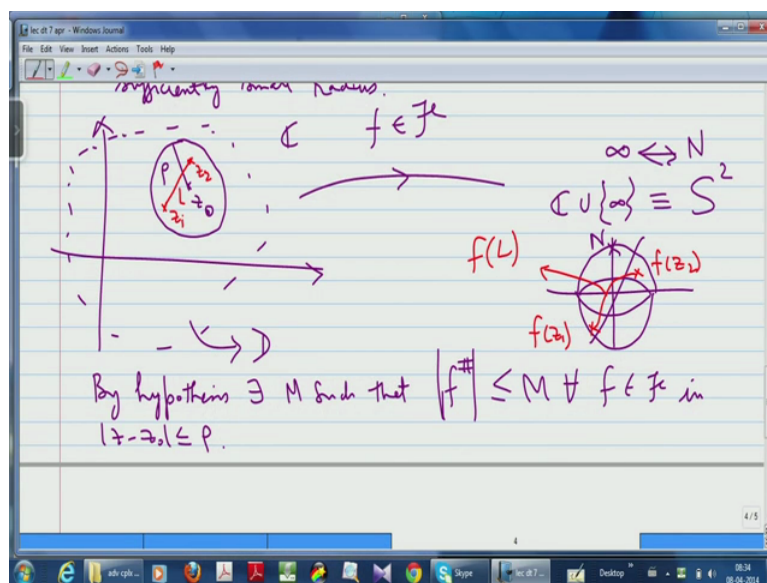 lec dt 7 apr - Windows Journal
File Edit View Insert Actions Tools Help
sufficiently small radius.
ℂ f ∈ ℱ
∞ ↔ N
ℂ ∪ {∞} ≡ S²
ρ z₂
L z₀
z₁
N
f(L) f(z₂)
f(z₁)
D
By hypothesis ∃ M such that |f^#| ≤ M ∀ f ∈ ℱ in
|z - z₀| ≤ ρ.
4 / 5
4
adv cplx... Skype lec dt 7 ... Desktop 08:34
08-04-2014